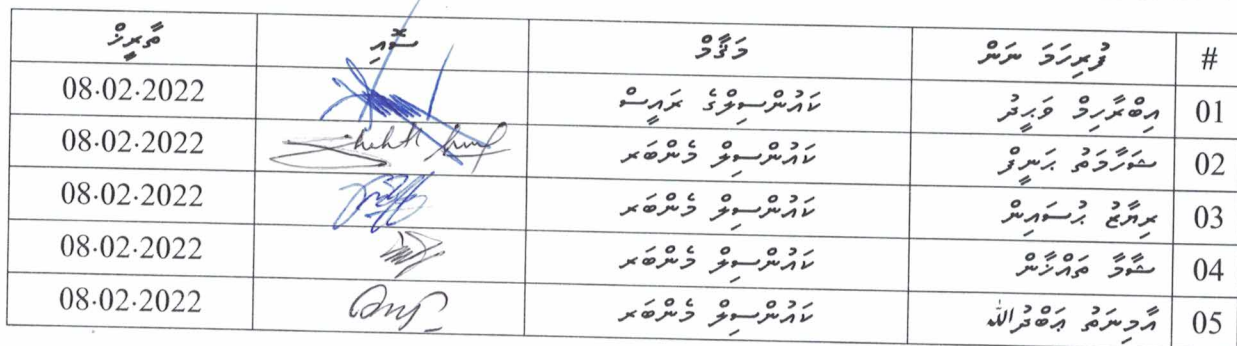 # ފުރިހަމަ ނަން މަޤާމް ސޮއި ތާރީޚް
01 އިބްރާހިމް ވަޙީދު ކައުންސިލްގެ ރައީސް 08.02.2022
02 ޝަހާމަތު ޙަނީފް ކައުންސިލް މެންބަރ 08.02.2022
03 ރިޔާޒު ޙުސައިން ކައުންސިލް މެންބަރ 08.02.2022
04 ޝާމާ ތައްޚާން ކައުންސިލް މެންބަރ 08.02.2022
05 އާމިނަތު ޢަބްދުﷲ ކައުންސިލް މެންބަރ 08.02.2022